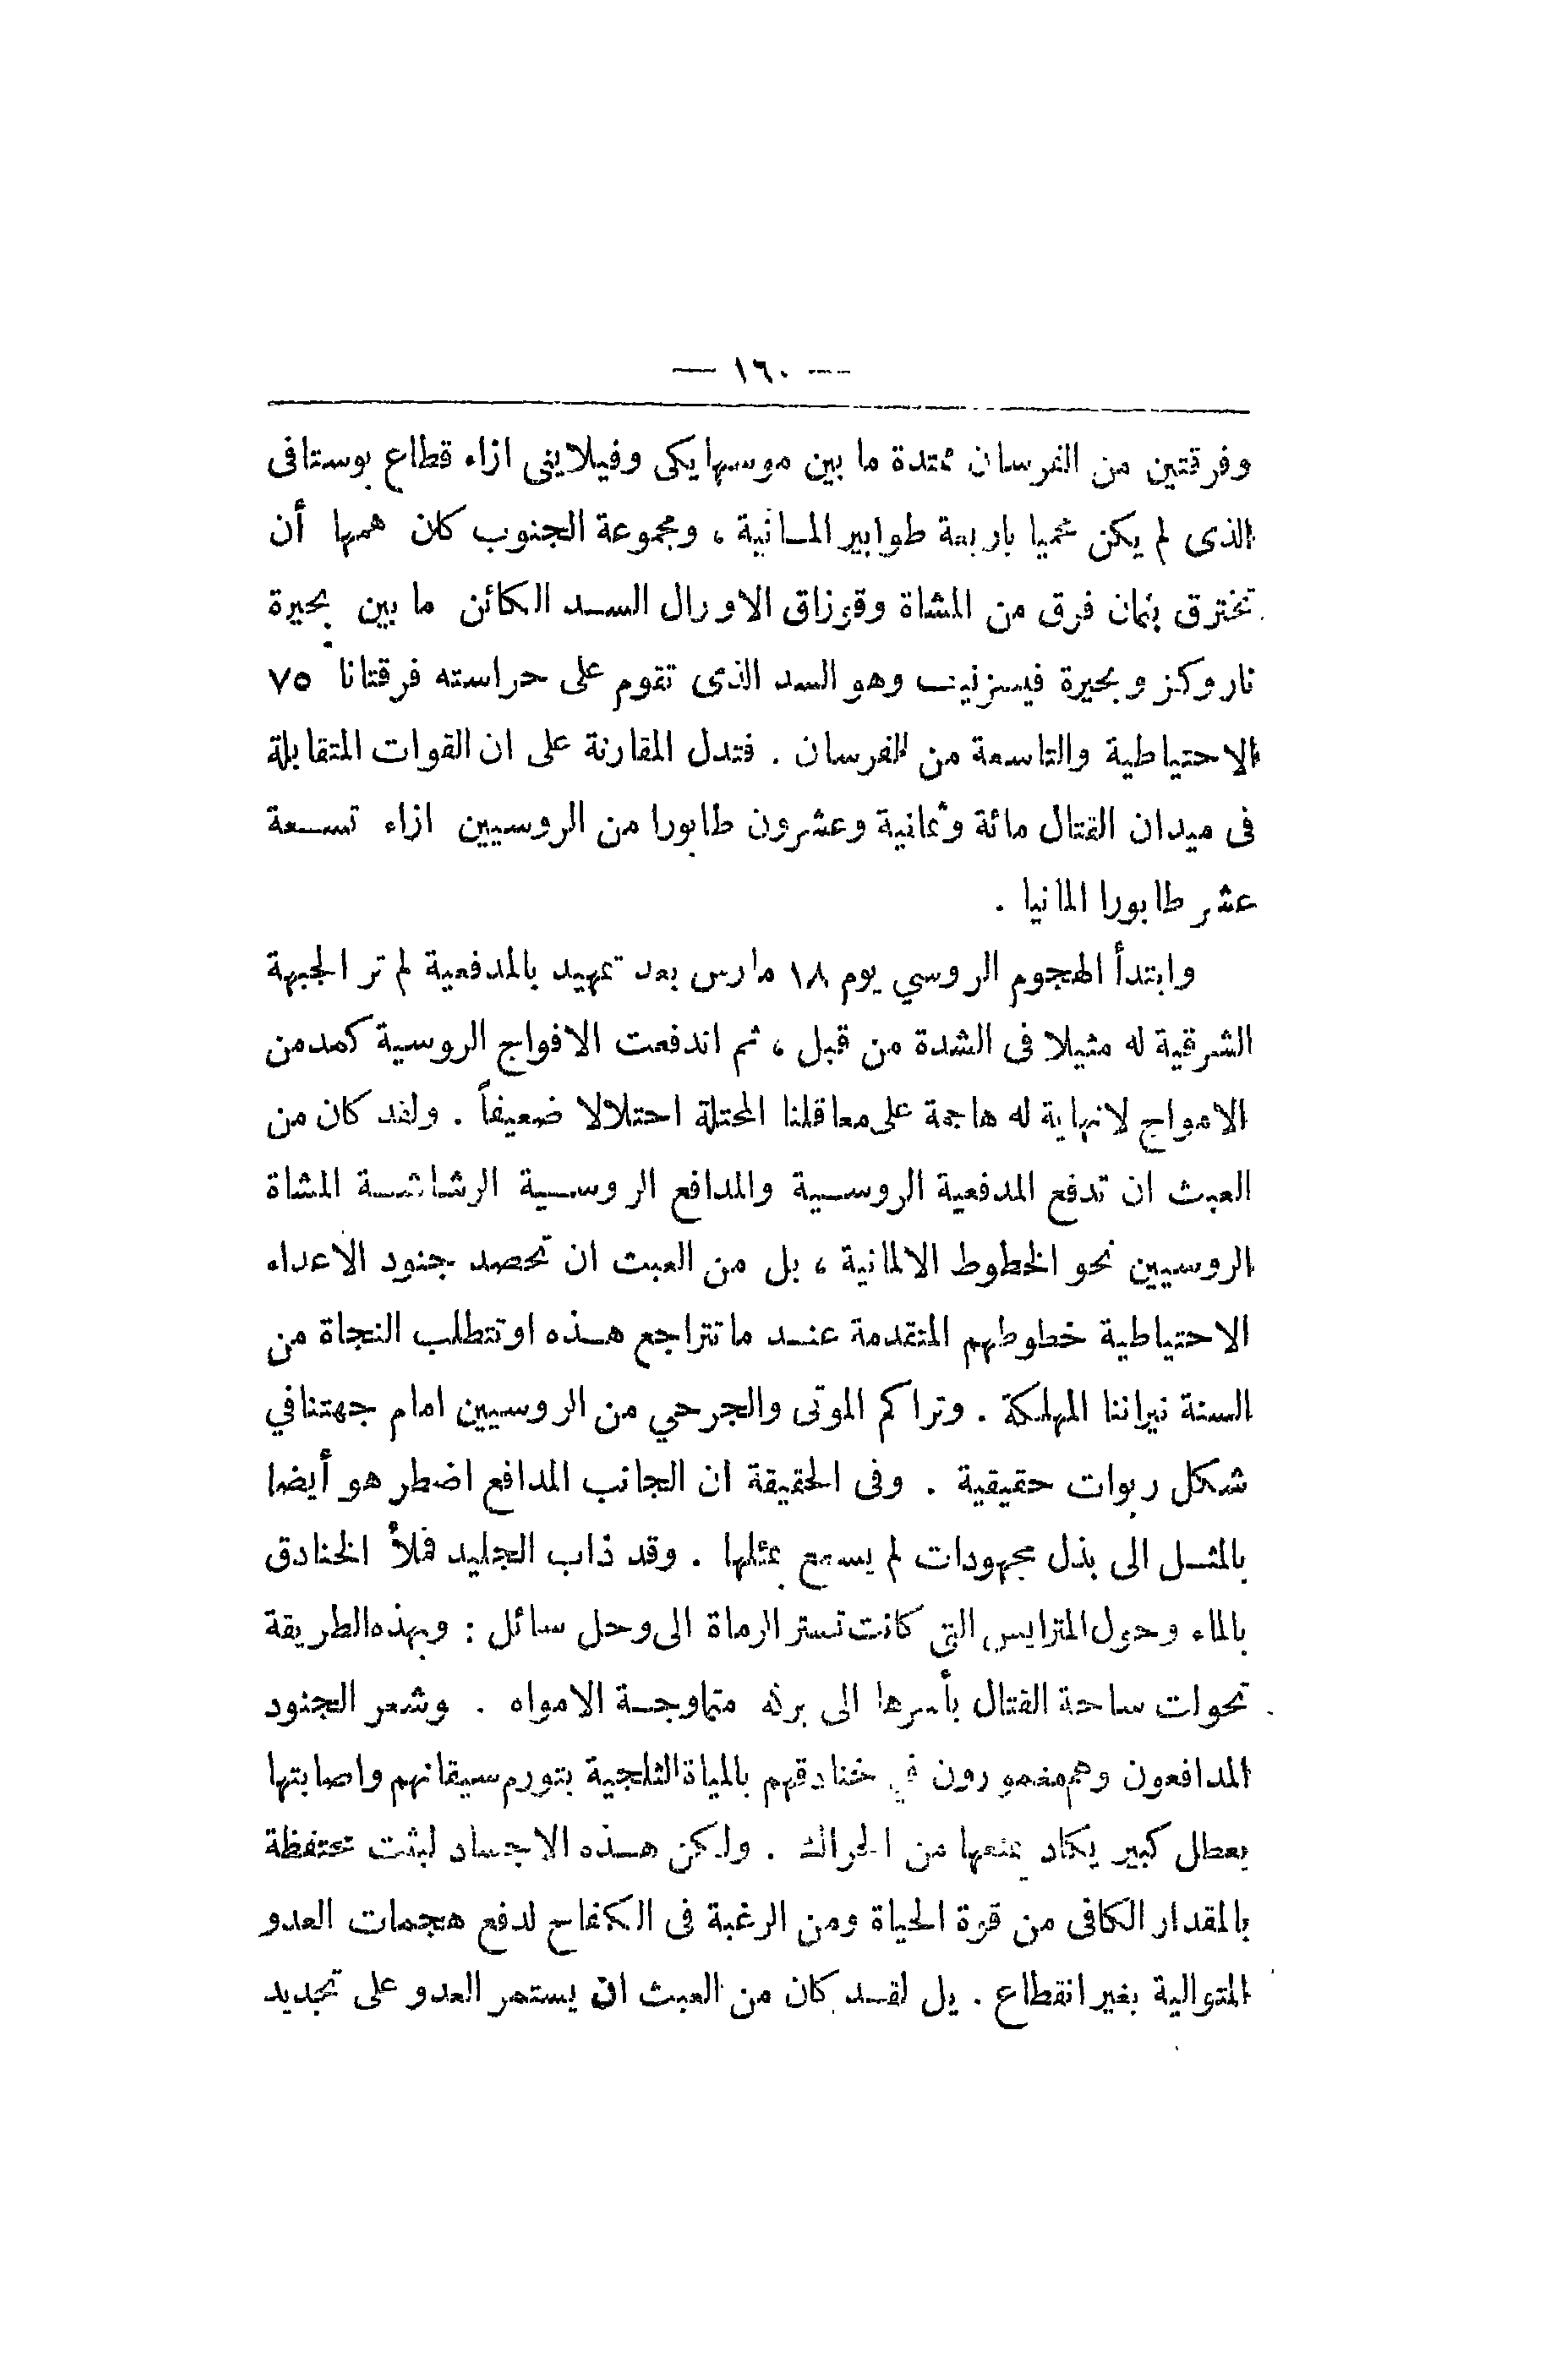 — ١٦٠ —
وفرقتين من الفرسان ممتدة ما بين موسهايكى وفيلايتى ازاء قطاع بوستافى
الذى لم يكن محميا باربعة طوابير المانية ، ومجموعة الجنوب كان همها أن
تخترق بثمان فرق من المشاة وقوزاق الاورال السد الكائن ما بين بحيرة
ناروكز وبحيرة فيسزنيف وهو السد الذى تقوم على حراسته فرقتانا ٧٥
الاحتياطية والتاسعة من الفرسان . فتدل المقارنة على ان القوات المتقابلة
فى ميدان القتال مائة وثمانية وعشرون طابورا من الروسيين ازاء تسعة
عشر طابورا المانيا .
وابتدأ الهجوم الروسي يوم ١٨ مارس بعد تمهيد بالمدفعية لم تر الجبهة
الشرقية له مثيلا فى الشدة من قبل ، ثم اندفعت الافواج الروسية كمد من
الامواج لانهاية له هاجمة على معاقلنا المحتلة احتلالا ضعيفاً . ولقد كان من
العبث ان تدفع المدفعية الروسية والمدافع الروسية الرشاشة المشاة
الروسيين نحو الخطوط الالمانية ، بل من العبث ان تحصد جنود الاعداء
الاحتياطية خطوطهم المتقدمة عند ما تتراجع هذه او تتطلب النجاة من
السنة نيراننا المهلكة . وتراكم الموتى والجرحي من الروسيين امام جهتنا في
شكل ربوات حقيقية . وفى الحقيقة ان الجانب المدافع اضطر هو أيضا
بالمثل الى بذل مجهودات لم يسمع بمثلها . وقد ذاب الجليد فملأ الخنادق
بالماء وحول المتراييس التى كانت تستر الرماة الى وحل سائل : وبهذه الطريقة
تحوات ساحة القتال بأسرها الى بركة متماوجة الامواه . وشعر الجنود
المدافعون وهم مغمورون في خنادقهم بالمياة الثلجية بتورم سيقانهم واصابتها
بعطل كبير يكاد يمنعها من الحراك . ولكن هذه الاجساد لبثت محتفظة
بالمقدار الكافى من قوة الحياة ومن الرغبة فى الكفاح لدفع هجمات العدو
المتوالية بغير انقطاع . بل لقد كان من العبث ان يستمر العدو على تجديد